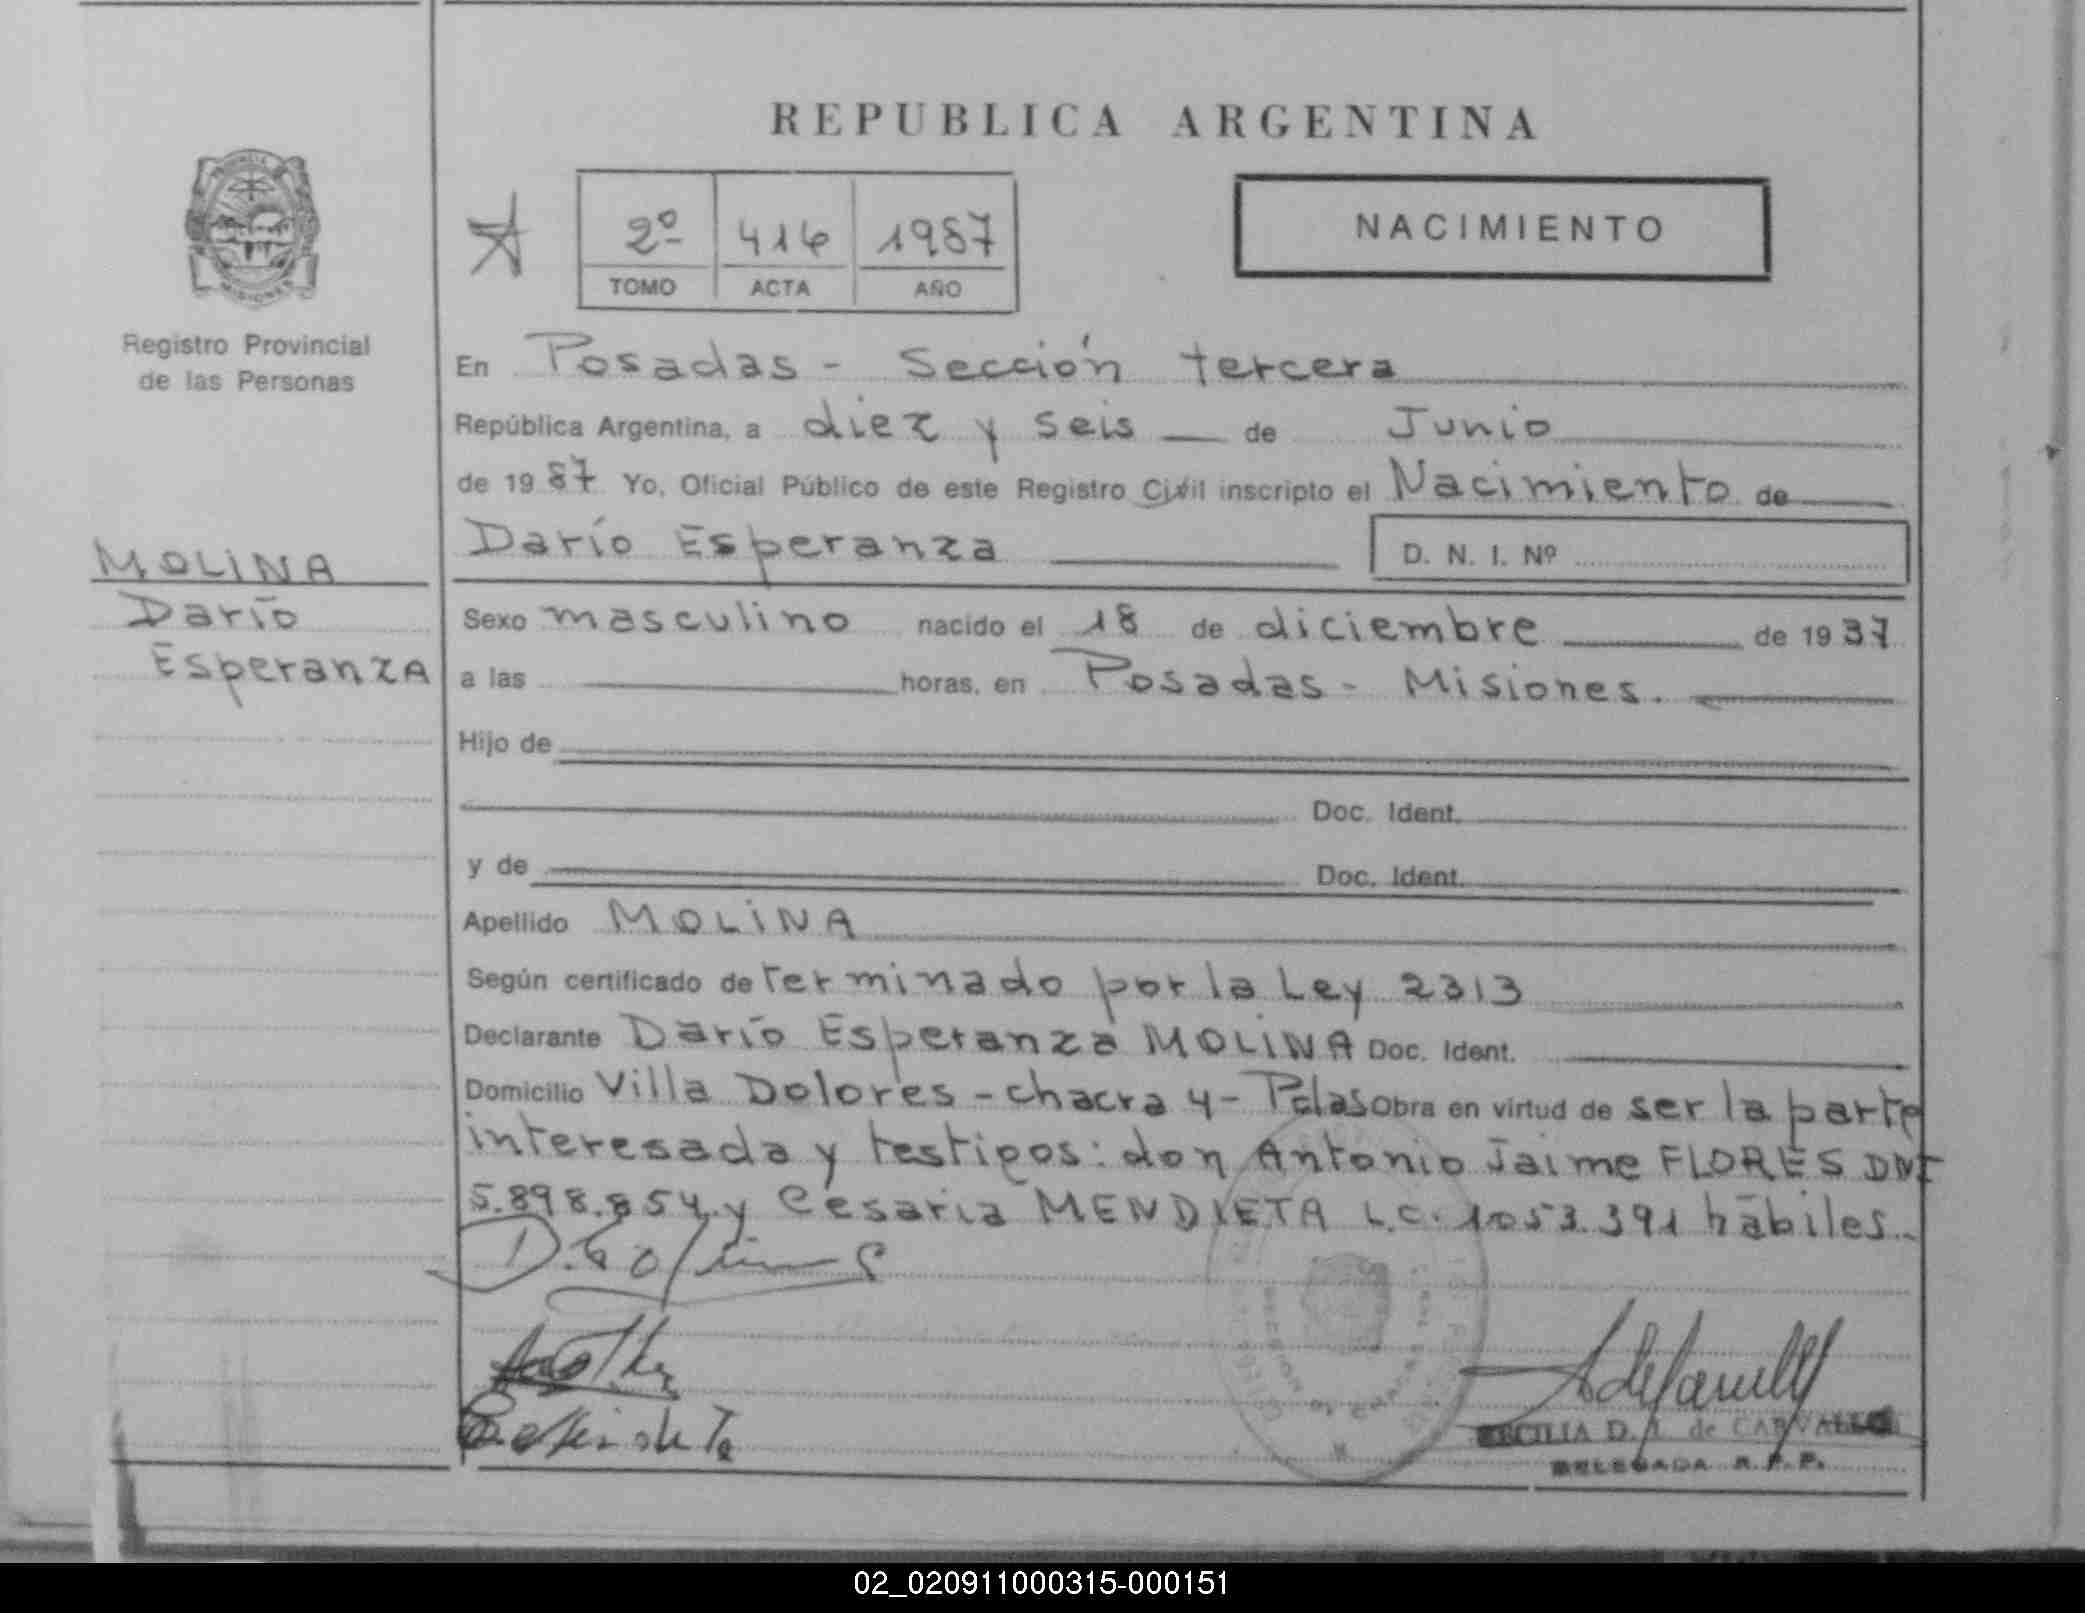 REPUBLICA ARGENTINA
2º 416 1987
TOMO ACTA AÑO
NACIMIENTO
MISIONES
Registro Provincial
de las Personas
En Posadas - Sección tercera
República Argentina, a diez y seis de Junio
de 1987 Yo, Oficial Público de este Registro Civil inscripto el Nacimiento de
Darío Esperanza
D. N. I. Nº
MOLINA
Darío
Esperanza
Sexo masculino nacido el 18 de diciembre de 1937
a las horas, en Posadas - Misiones.
Hijo de
Doc. Ident.
y de Doc. Ident.
Apellido MOLINA
Según certificado determinado por la Ley 2313
Declarante Darío Esperanza MOLINA Doc. Ident.
Domicilio Villa Dolores - chacra 4 - Pdas Obra en virtud de ser la parte
interesada y testigos: don Antonio Jaime FLORES DNI
5.898.854 y Cesaria MENDIETA L.C. 1053.391 hábiles.
CECILIA D. A. de CARVALLO
DELEGADA R. P. P.
02_020911000315-000151